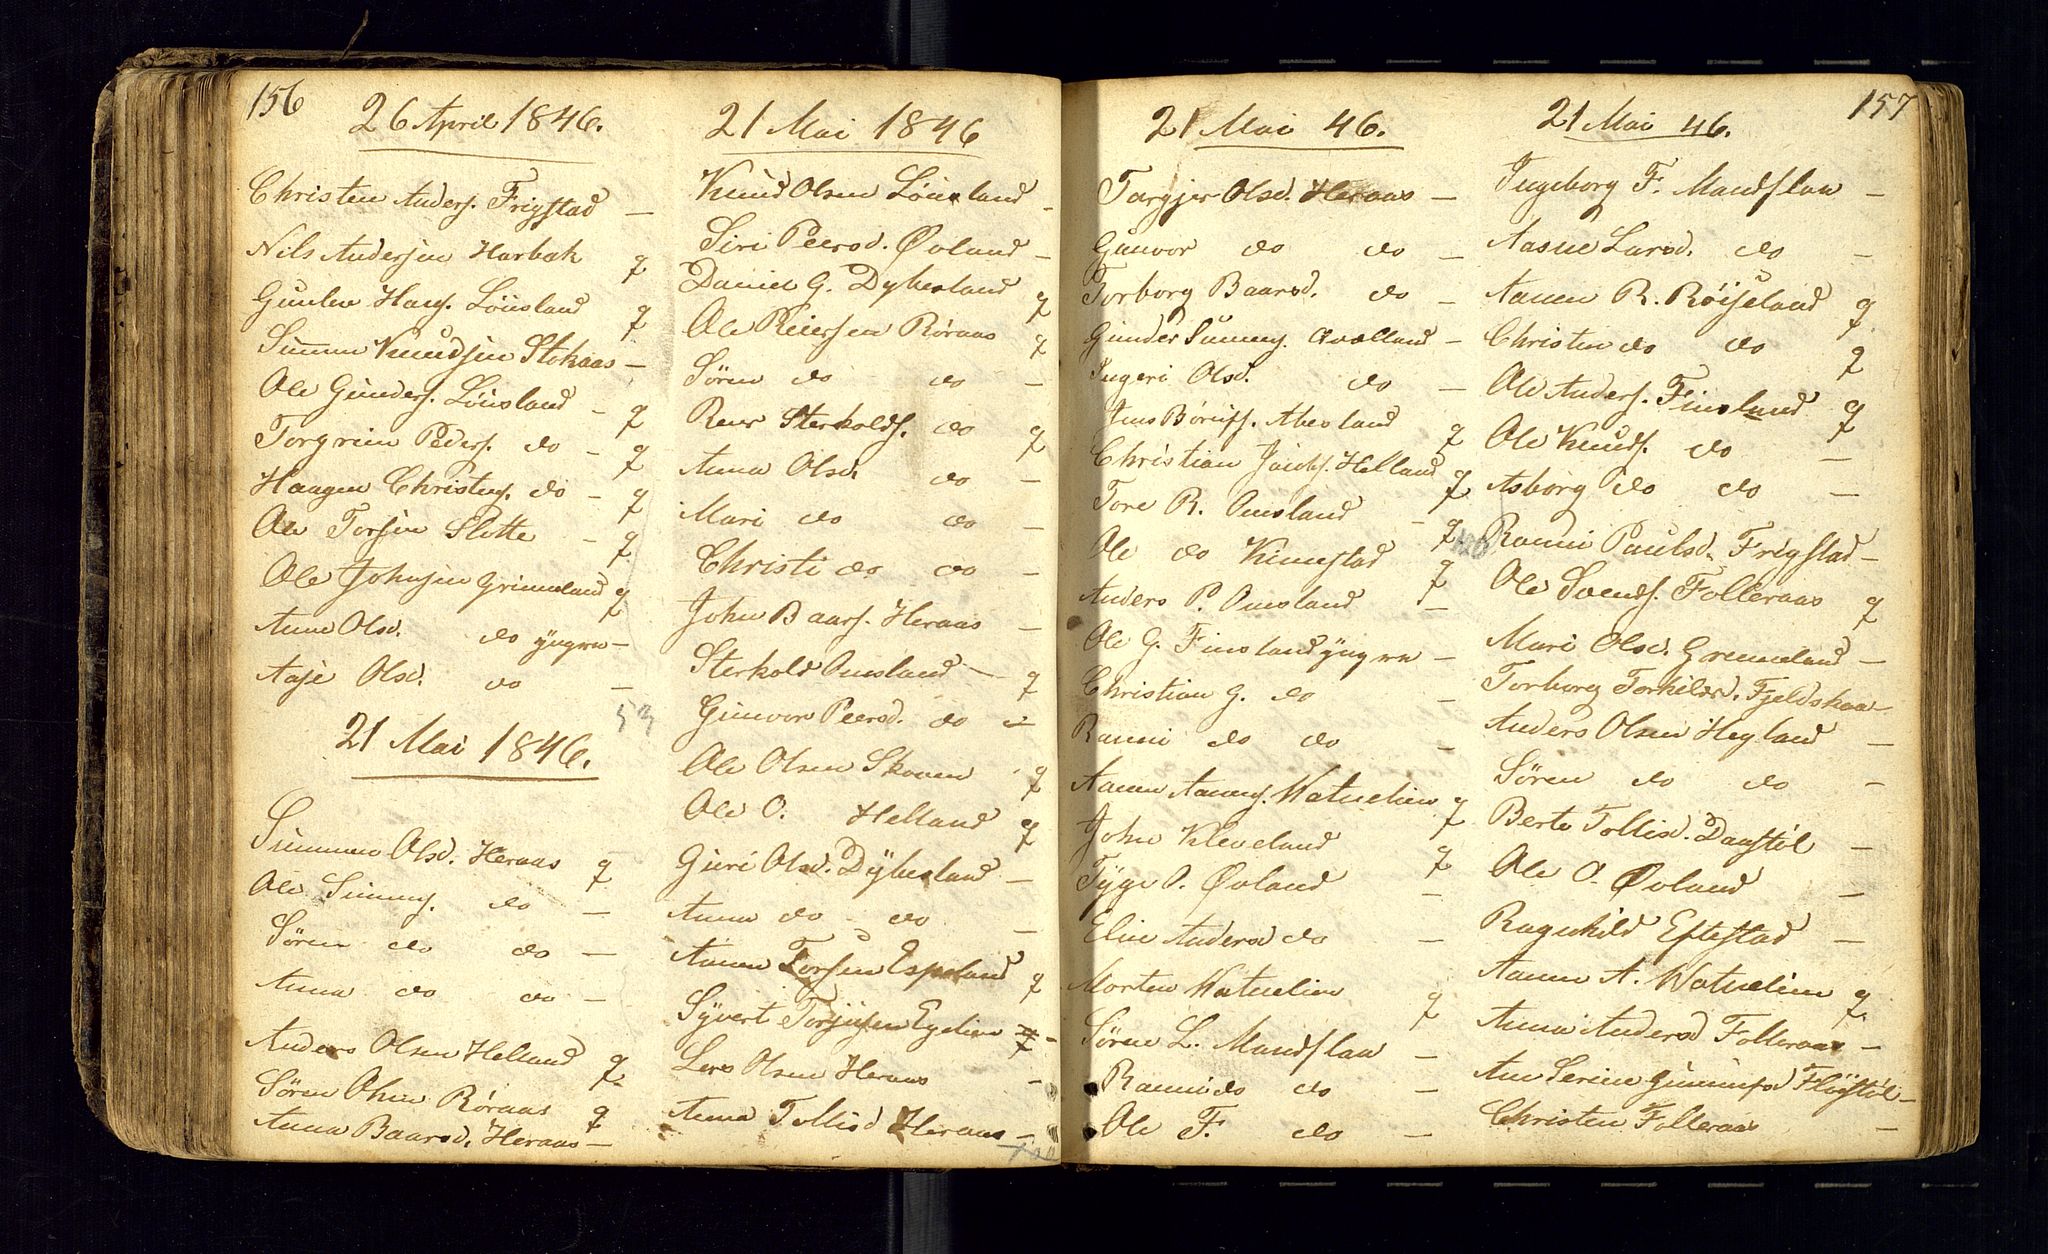 156
26 April 1846.
Christen Anders. Frigstad —
Nils Andersen Harbak q
Gunlev Hans. Lönsland q
Simmen Knudsen Stokaas —
Ole Gunders. Lönsland – q
Torgrim Peders. do – q
Haagen Christens. do – q
Ole Torsen Slotte – q
Ole Johnsen Grimeland q
Anne Olsd. do yngre –
Aase Olsd. do –
53
21 Mai 1846.
Simmen Olsd. Heraas q
Ole Simens. do –
Sören do do –
Anna do do –
Anders Olsen Helland q
Sören Olsen Röraas q
Anna Baarsd. Heraas –
21 Mai 1846
Knud Olsen Lönsland –
Siri Peersd. Øvland –
Daniel G. Dybesland q
Ole Reiersen Röraas q
Sören do do –
Reier Sterkolds. do q
Anna Olsd. do –
Mari do do –
Christi do do –
John Baars. Heraas –
Sterkold Omsland – q
Gunvor Peersd. do –
Ole Olsen Skoven q
Ole O. Helland q
Guri Olsd. Dybesland –
Anna do do –
Aanen Torsen Espeland q
Syvert Torjusen Egelien –
Lars Olsen Heraas –
Anna Tollisd Heraas –
100
21 Mai 46.
Targjer Olsd. Heraas –
Gunvor do do –
Torborg Baarsd. do –
Gunder Simens. Qvælland –
Ingeri Olsd. do –
Jens Börufs. Abesland q
Christian Jacobs. Helland q
Tore R. Omsland – q
Ole do Kimestad q
Anders P. Omsland –
Ole G. Finsland yngre –
Christian G. do –
Ranni do do –
Aanen Aanens. Watnelien q
John Kleveland q
Tyge O. Øvland –
Elin Andersd do –
Morten Watnelien q
Sören L. Mandflaa –
Ranni do do –
Ole F. do –
157
21 Mai 46.
Ingeborg F. Mandflaa –
Aasne Larsd. do –
Aanen R. Röiseland q
Christen do do q
Ole Anders. Finsland q
Ole Knuds. do –
Asborg do do –
120
Ranni Paulsd. Frigstad –
Ole Svends. Folleraas q
Mari Olsd. Grimeland –
Torborg Torkildsd. Fjeldskaa –
Anders Olsen Hegland –
Sören do do –
Berte Tollisd. Daastöl –
Ole O. Øvland –
Ragnhild Eftestad –
Aanen A. Watnelien q
Anna Andersd Folleraas –
An Serine Gunnufsd Flöystöl –
Christen Folleraas –